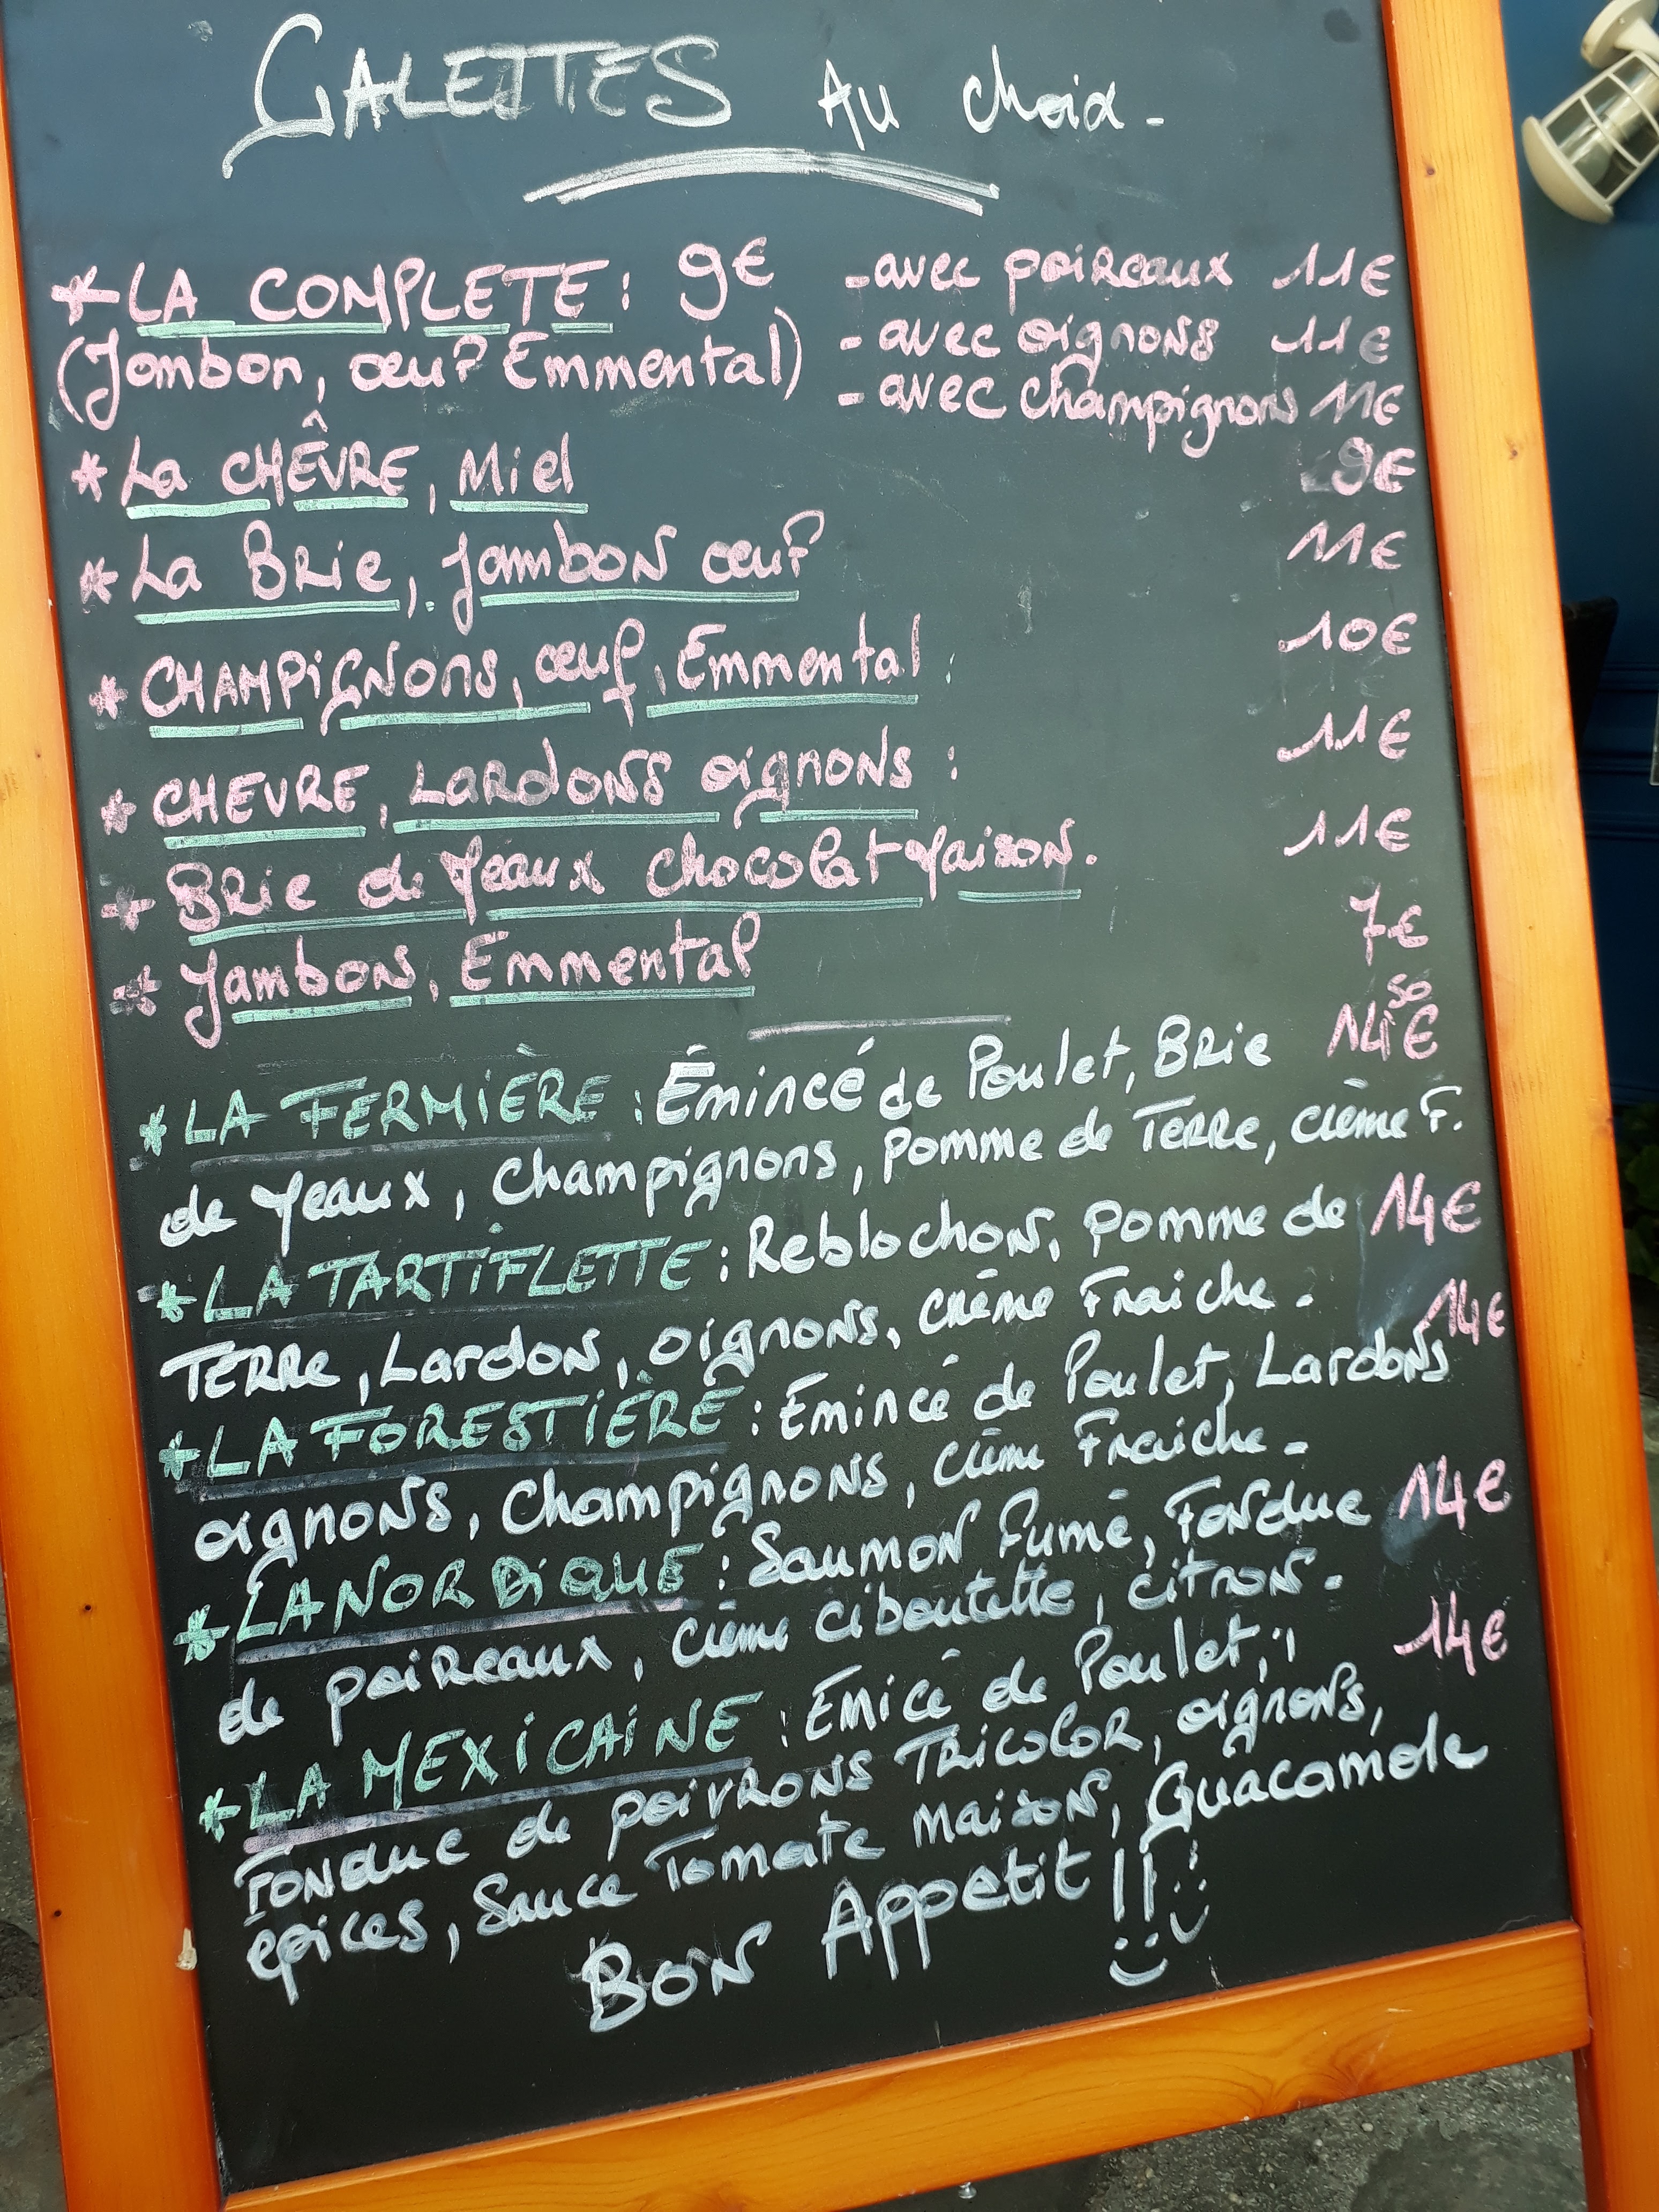 GALETTES Au choix -
* LA COMPLETE : 9€ - avec poireaux 11€
(Jambon, œuf Emmental) - avec oignons 11€
- avec champignons 11€
* La CHÊVRE, Miel 9€
* La Brie, Jambon œuf 11€
* CHAMPIGNONS, œuf, Emmental : 10€
* CHEVRE, LARDONS oignons : 11€
* BRie de Meaux chocolat Maison. 11€
* Jambon, Emmental 7€
* LA FERMIÈRE : Émincé de Poulet, Brie 14,50€
de Meaux, Champignons, pomme de Terre, crème F.
* LA TARTIFLETTE : Reblochon, pomme de 14€
TERRe, Lardon, oignons, crème Fraiche -
* LA FORESTIÈRE : Emincé de Poulet, Lardons 14€
oignons, Champignons, crème Fraiche -
* LA NORDIQUE : Saumon Fumé, Fondue 14€
de poireaux, crème ciboutette, citron -
* LA MEXICAINE : Emicé de Poulet, 14€
Fondue de poivrons Tricolor, oignons,
épices, Sauce Tomate Maison, Guacamole
Bon Appetit !!